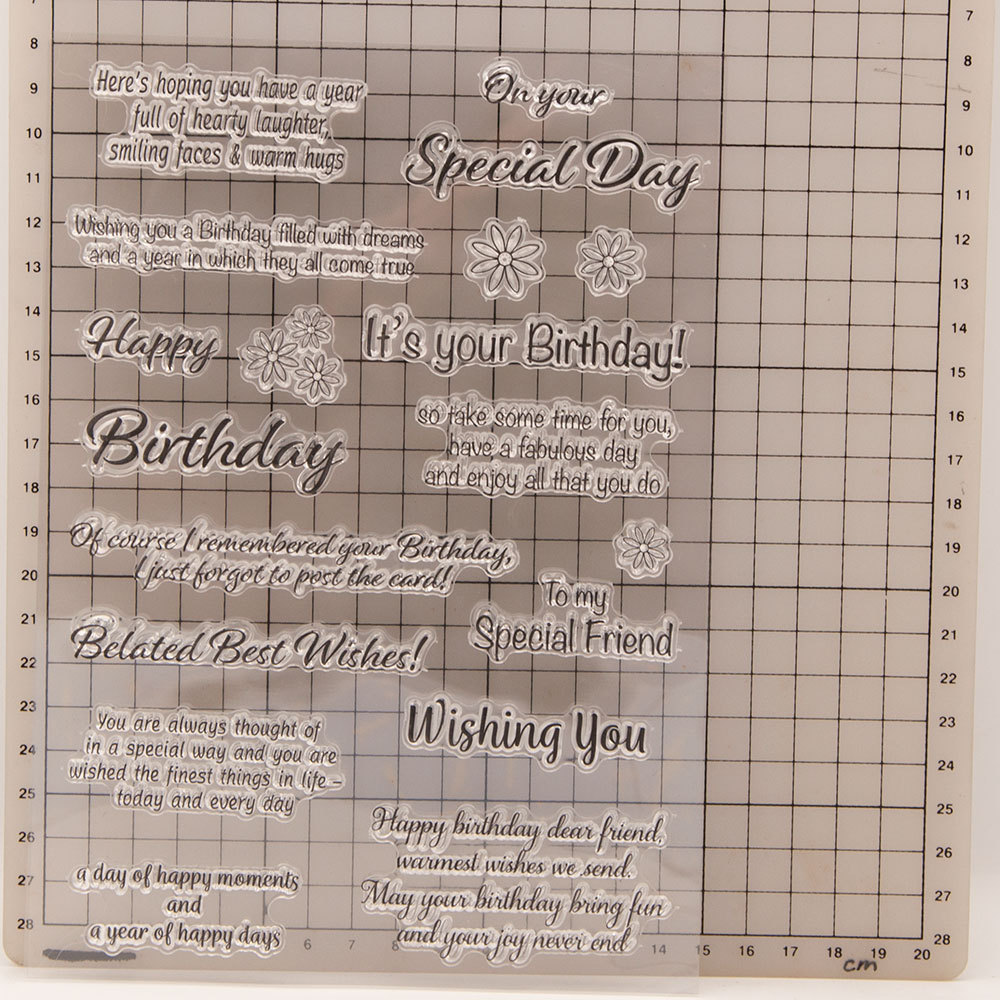 Here's hoping you have a year
full of hearty laughter,
smiling faces & warm hugs
On your
Special Day
Wishing you a Birthday filled with dreams
and a year in which they all come true
Happy
It's your Birthday!
Birthday
so take some time for you,
have a fabulous day
and enjoy all that you do
Of course I remembered your Birthday,
I just forgot to post the card!
To my
Special Friend
Belated Best Wishes!
You are always thought of
in a special way and you are
wished the finest things in life –
today and every day
Wishing You
Happy birthday dear friend,
warmest wishes we send.
May your birthday bring fun
and your joy never end
a day of happy moments
and
a year of happy days
8
9
10
11
12
13
14
15
16
17
18
19
20
21
22
23
24
25
26
27
28
7
8
9
10
11
12
13
14
15
16
17
18
19
20
21
22
23
24
25
26
27
28
6 7 8 14 15 16 17 18 19 20
cm